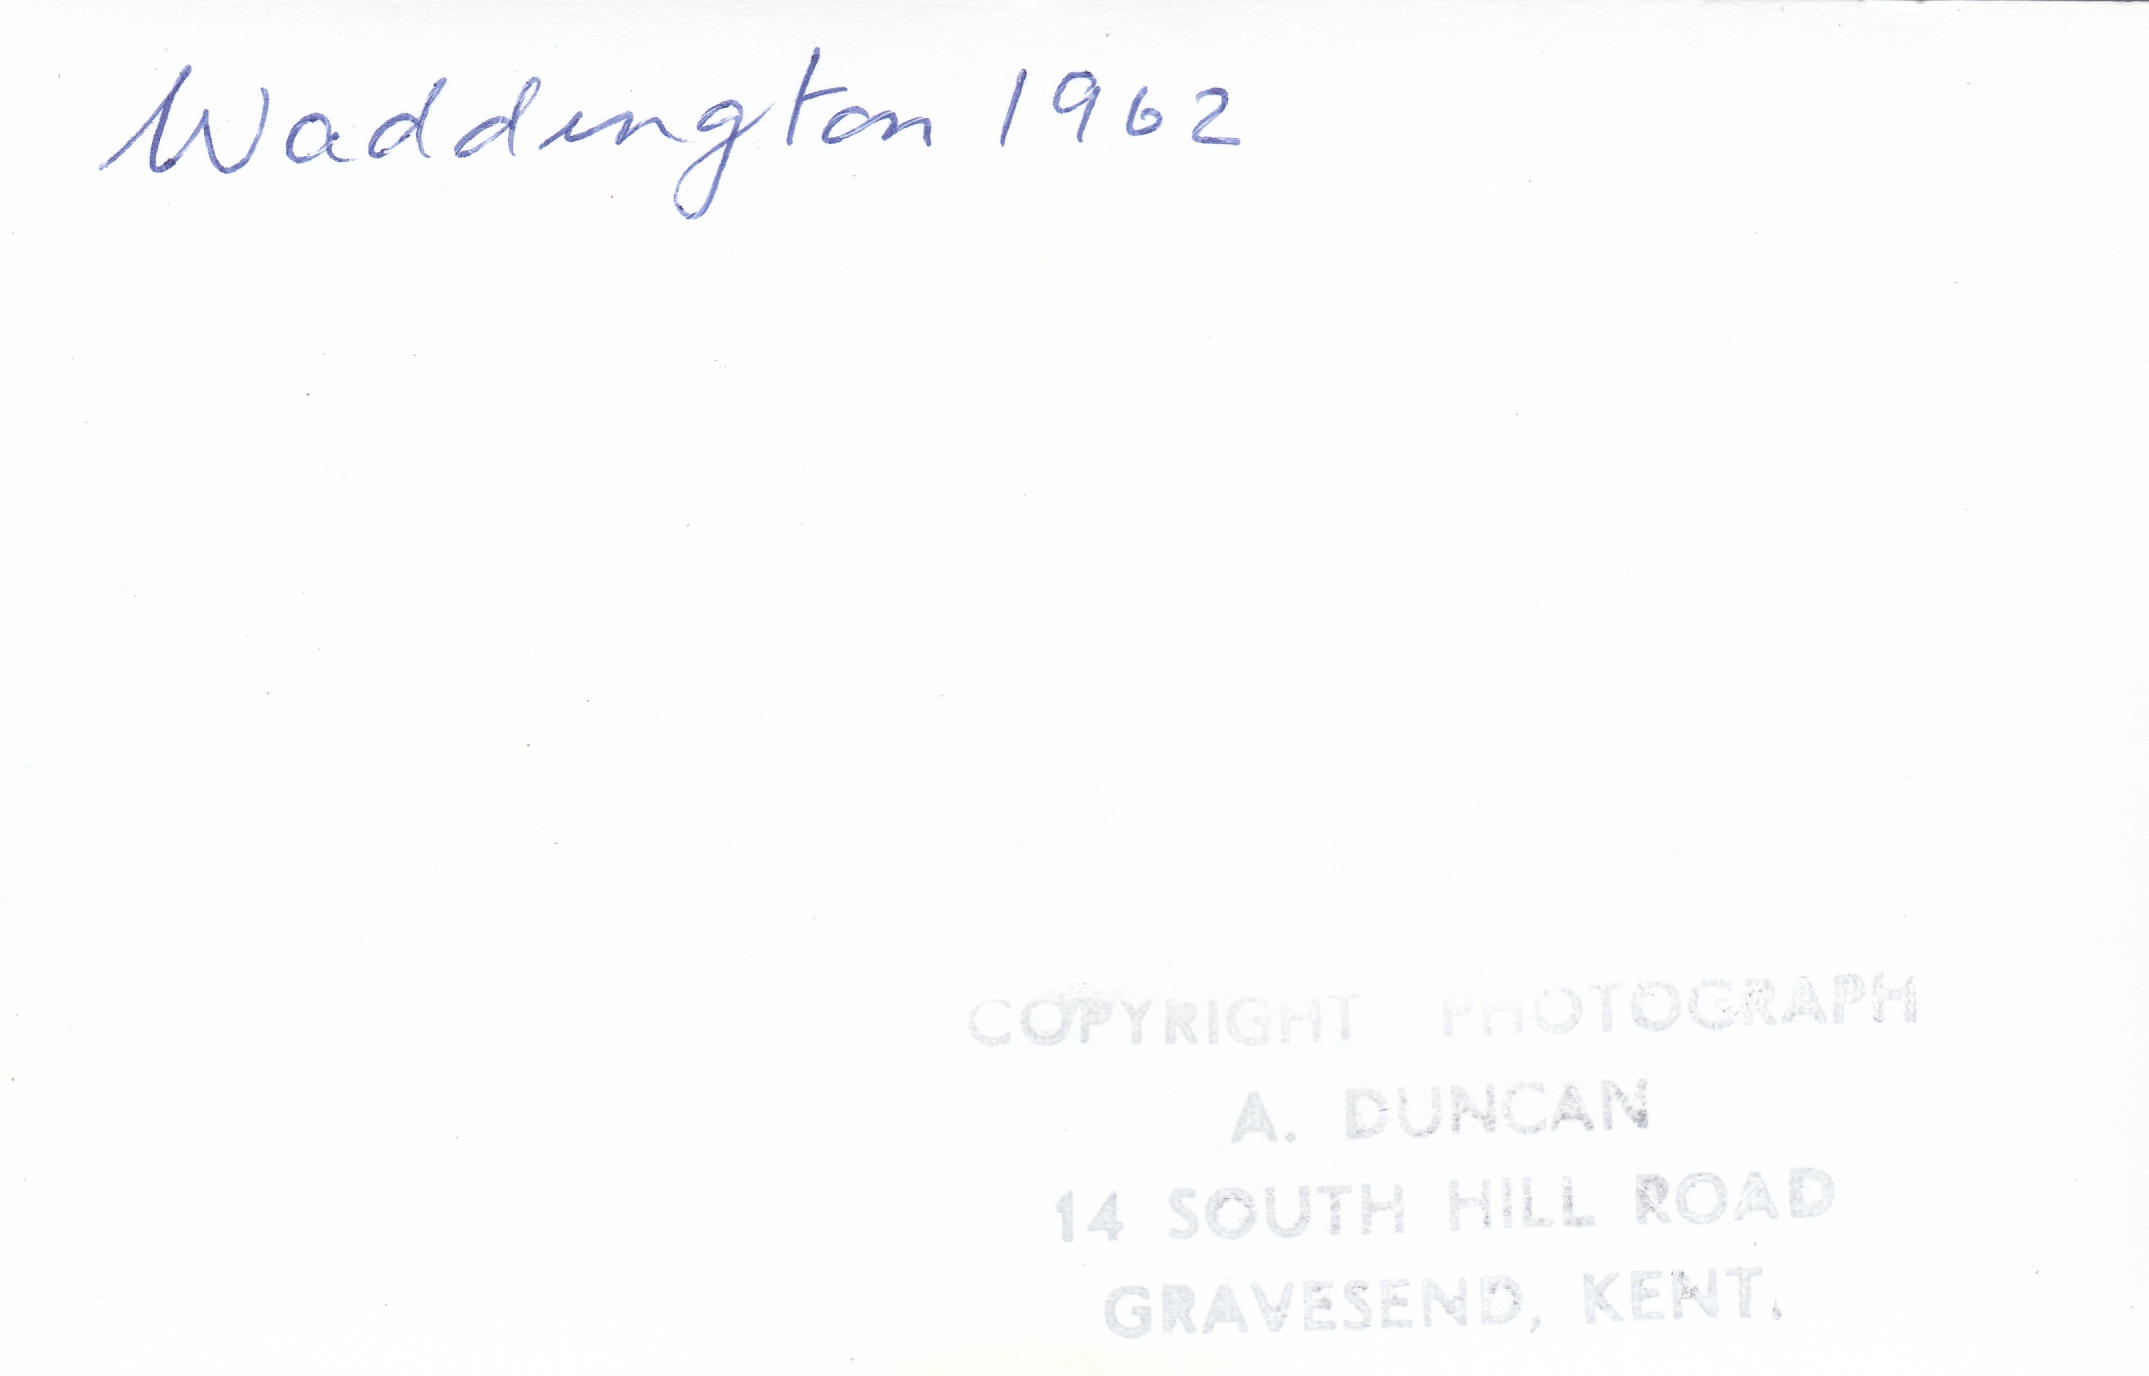 Waddington 1962
COPYRIGHT PHOTOGRAPH
A. DUNCAN
14 SOUTH HILL ROAD
GRAVESEND, KENT.